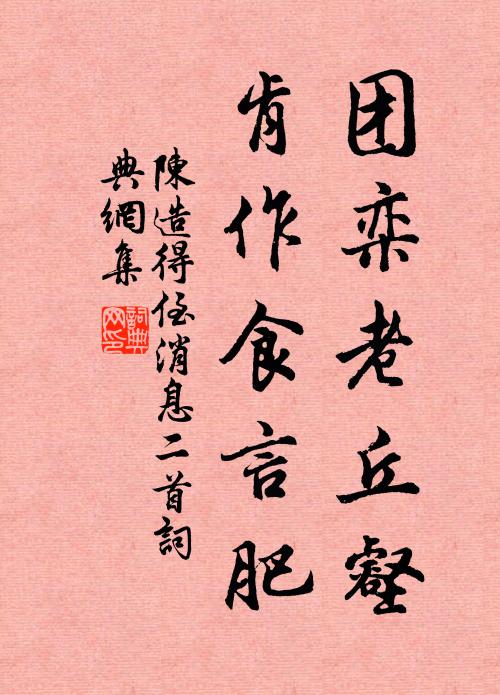 团栾老丘壑
肯作食言肥
陳造得侄消息二首詞
典網集
詞典网印